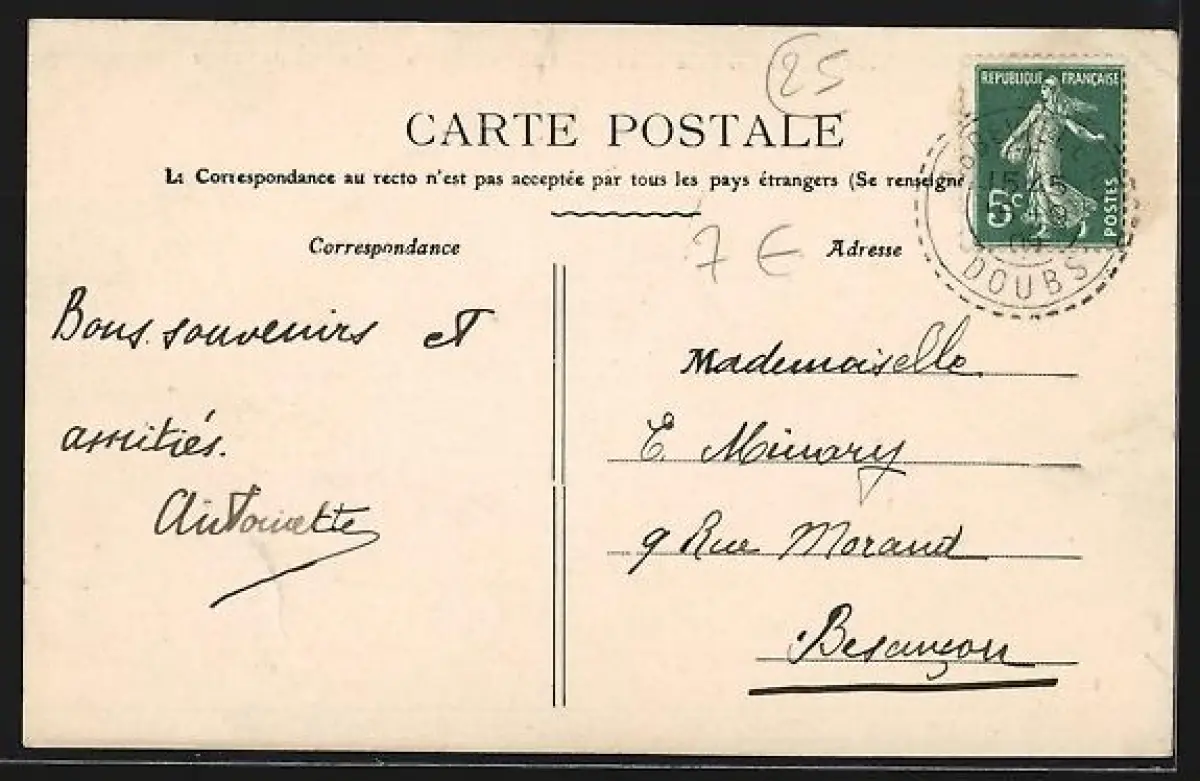 25
CARTE POSTALE
La Correspondance au recto n'est pas acceptée par tous les pays étrangers (Se renseigne
7 €
Correspondance
Adresse
REPUBLIQUE FRANÇAISE
5c
POSTES
15 45
DOUBS
Bons souvenirs et
amitiés.
Antoinette
Mademoiselle
E. Minary
9 Rue Morand
Besançon